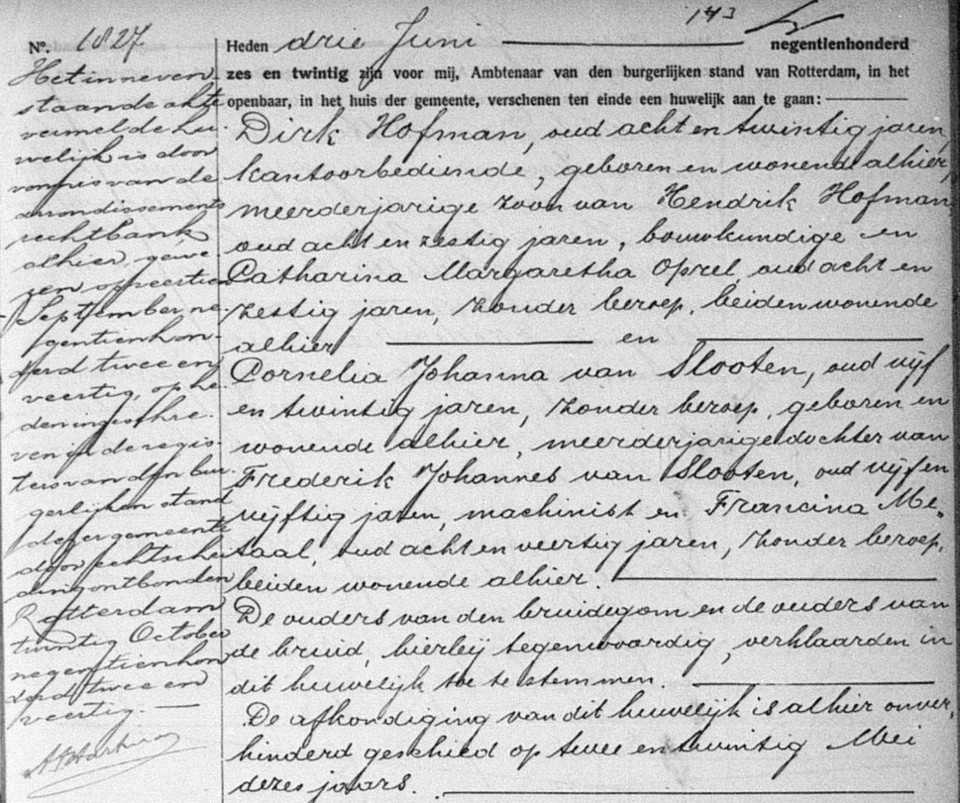 143
Nº. 1827.
Het in neven-
staande akte
vermelde hu-
welijk is door
vonnis van de
arrondissements
rechtbank
alhier, gewe-
zen op veertien
September ne-
gentienhon-
derd twee en
veertig, op he-
den ingeschre-
ven in de regis-
ters van den bur-
gerlijken stand
dezer gemeente
door echtschei-
ding ontbonden
Rotterdam
twintig October
negentienhon
derd twee en
veertig. —
Heden drie Juni negentienhonderd
zes en twintig zijn voor mij, Ambtenaar van den burgerlijken stand van Rotterdam, in het
openbaar, in het huis der gemeente, verschenen ten einde een huwelijk aan te gaan: —
Dirk Hofman, oud acht en twintig jaren,
kantoorbediende, geboren en wonende alhier,
meerderjarige zoon van Hendrik Hofman
oud acht en zestig jaren, bouwkundige en
Catharina Margaretha Oprel oud acht en
zestig jaren, zonder beroep, beiden wonende
alhier — en —
Cornelia Johanna van Slooten, oud vijf
en twintig jaren, zonder beroep, geboren en
wonende alhier, meerderjarige dochter van
Frederik Johannes van Slooten, oud vijf en
vijftig jaren, machinist en Francina Me-
taal, oud acht en veertig jaren, zonder beroep,
beiden wonende alhier. —
De ouders van den bruidegom en de ouders van
de bruid, hierbij tegenwoordig, verklaarden in
dit huwelijk toe te stemmen. —
De afkondiging van dit huwelijk is alhier onver-
hinderd geschied op twee en twintig Mei
dezes jaars. —